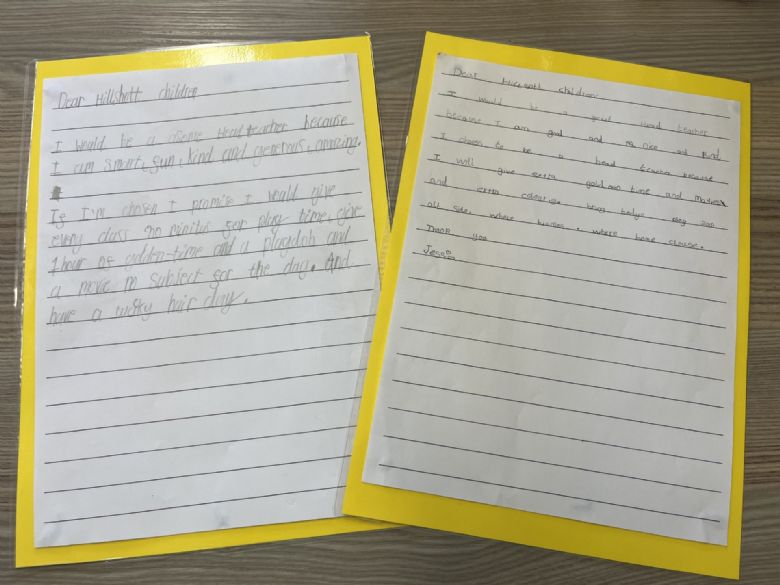 Dear Hillshott children
I would be a asome Head teacher because
I am smart, gun, kind and generous, amazing.
Ig I'm chosen I promise I would give
every class minitus gor play time, give
1 hour og golden-time and a playdoh and
a movie in subject gor the day. And
have a wacky hair day.
Dear children
I would be a great Head teacher
because I am good and nice and kind.
I chosen to be a head teacher because
I will give extra goldaan time and
and extra colouring. bring teddys
all side. where . where home clouse.
Thank you
Jessie